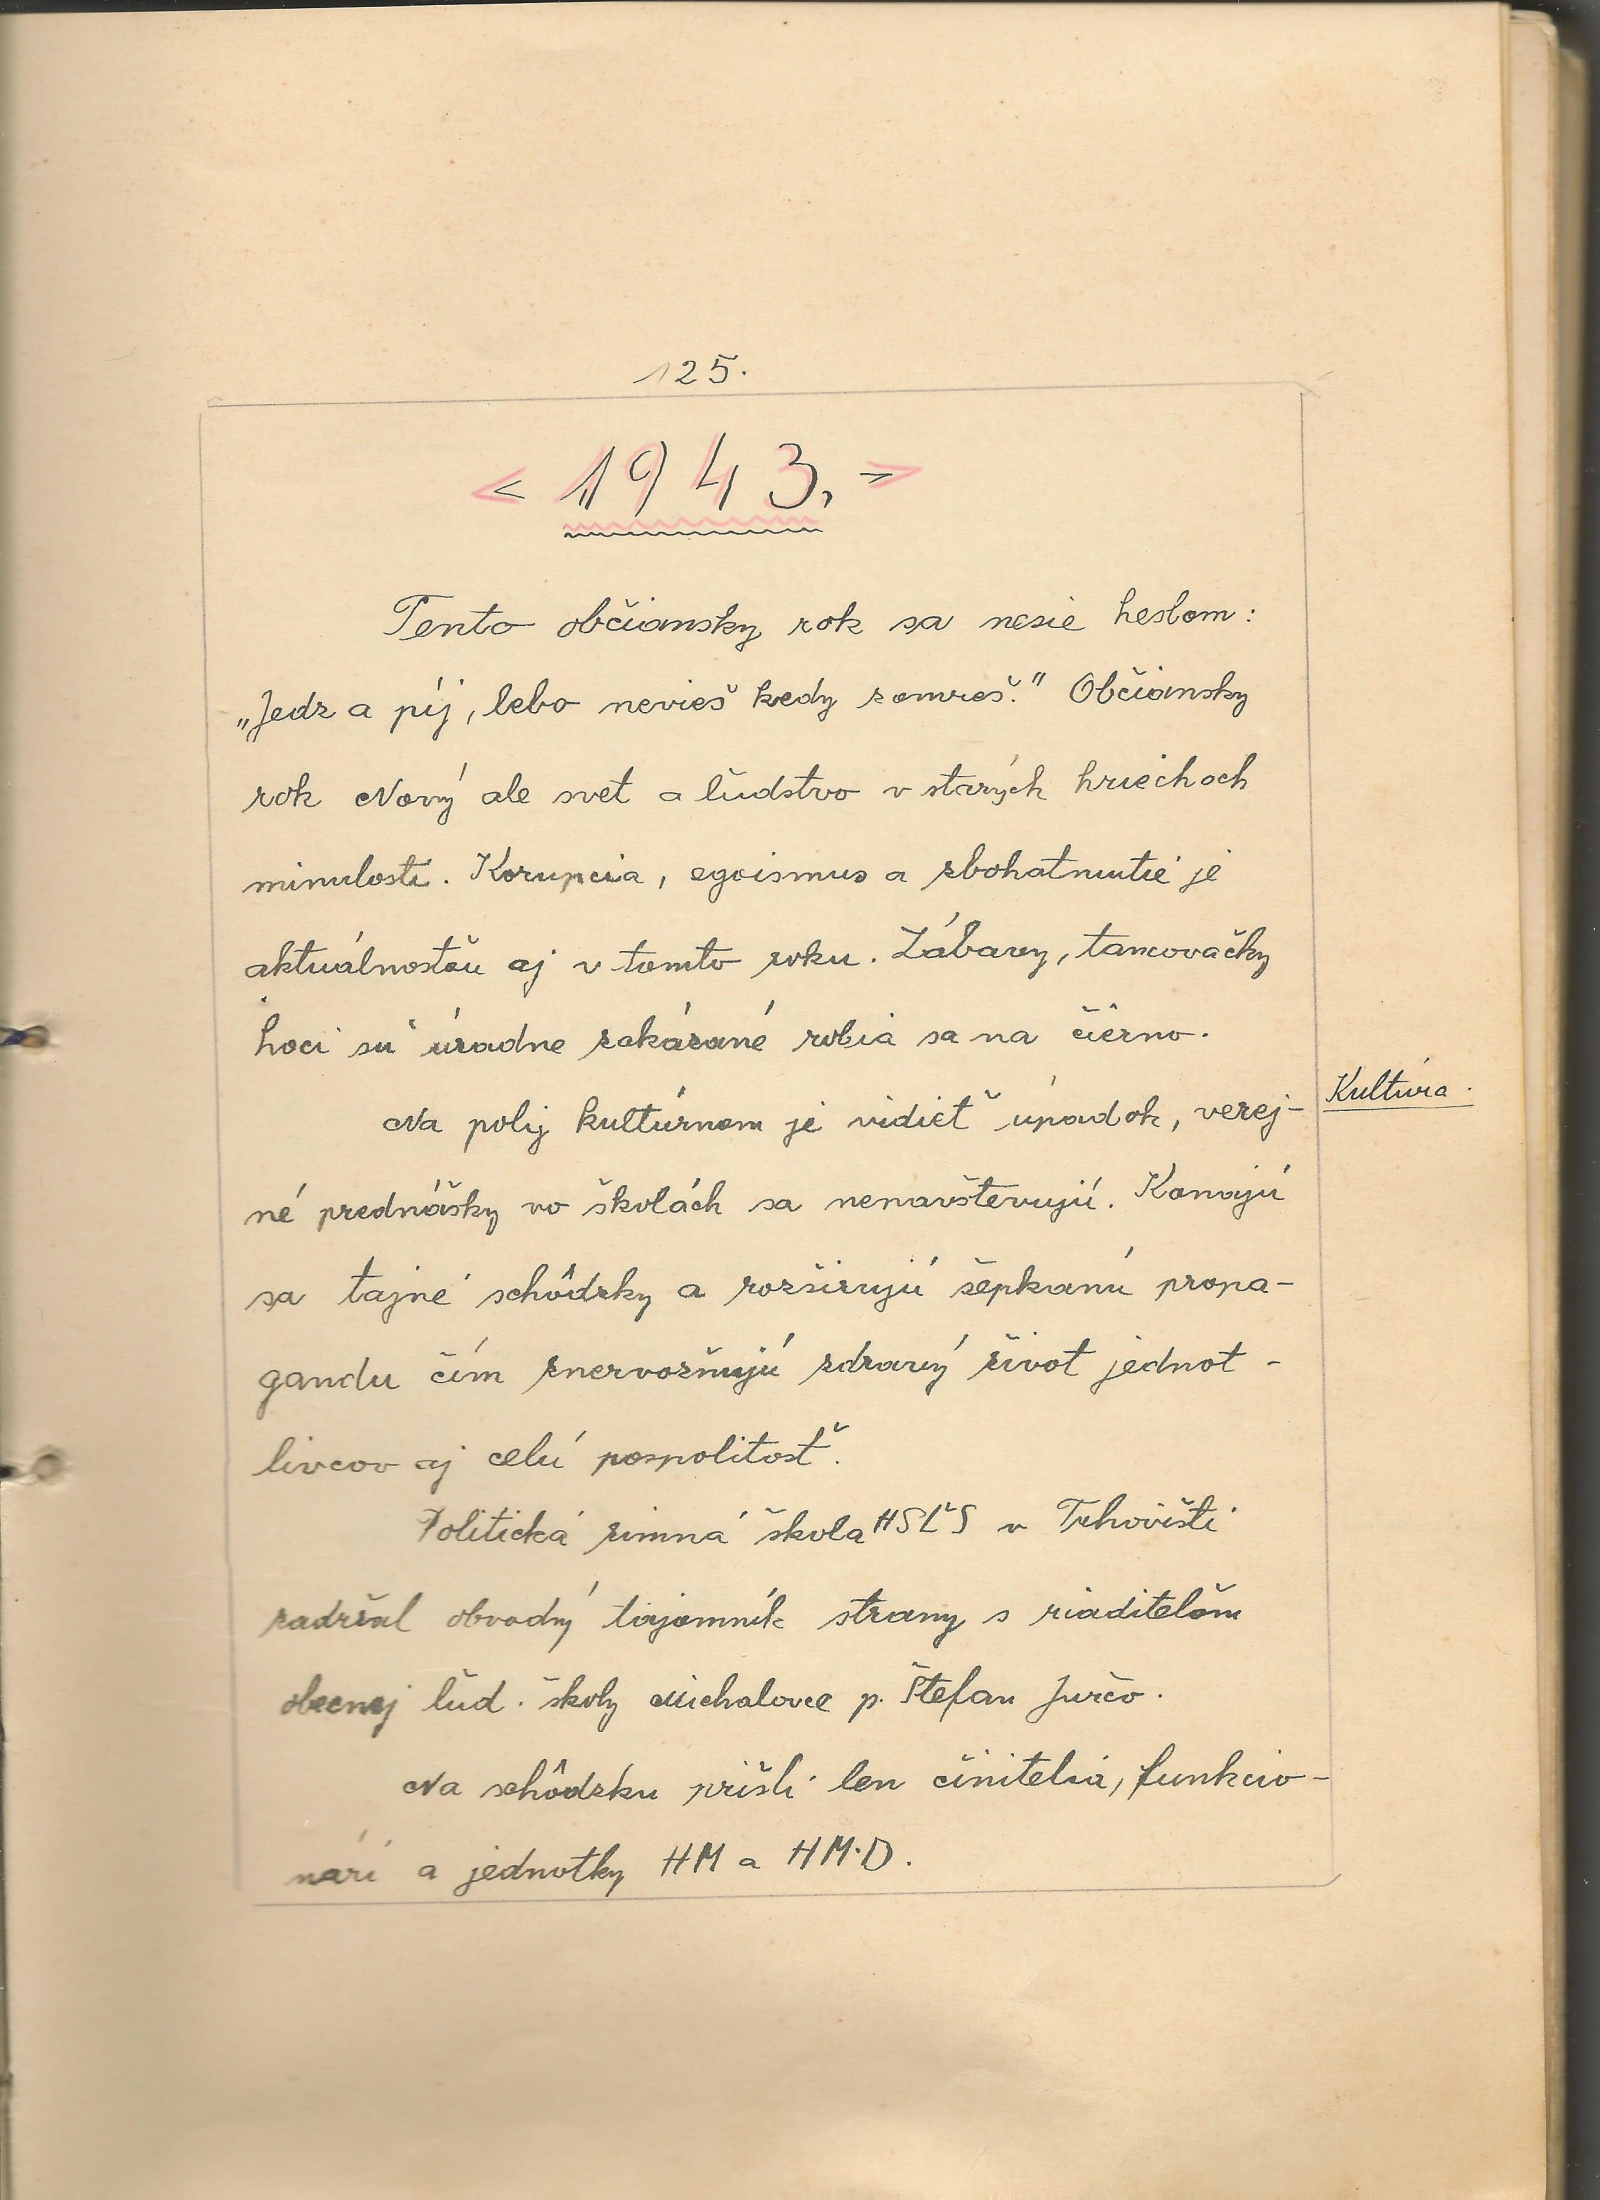 125.
< 1943. >
Tento občiansky rok sa nesie heslom:
„Jedz a pij, lebo nevieš kedy zomreš." Občiansky
rok Nový ale svet a ľudstvo v starých hriechoch
minulosti. Korupcia, egoismus a zbohatnutie je
aktuálnosťou aj v tomto roku. Zábavy, tancovačky
hoci sú úradne zakázané robia sa na čierno.
Kultúra.
Na polij kultúrnom je vidieť úpadok, verej-
né prednášky vo školách sa nenavštevujú. Konajú
sa tajné schôdzky a rozširujú šepkanú propa-
gandu čím znervozňujú zdravý život jednot-
livcov aj celú pospolitosť.
Politická zimná škola HSĽS v Trhovišti
zadržal obvodný tajomník strany s riaditeľom
obecnej ľud. školy Michalovce p. Štefan Jurčo.
Na schôdzku prišli len činitelia, funkcio-
nári a jednotky HM a HM.D.